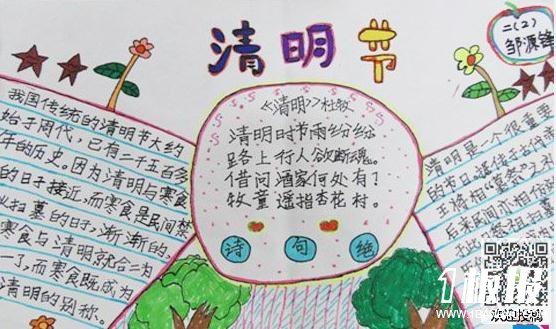 清明节
二(2)
邹源锋
我国传统的清明节大约
始于周代,已有二千五百多
年的历史。因为清明与寒食
的日子接近,而寒食是民间禁
火扫墓的日子,渐渐的,
寒食与清明就合二为
一了,而寒食既成为
清明的别称。
《清明》杜牧
清明时节雨纷纷
路上行人欲断魂。
借问酒家何处有!
牧童遥指杏花村。
诗 句 绝
清明是一个很重要
的节日遥传于古代帝
王将相"墓祭"之
后来民间亦相仿
于此日祭祖扫